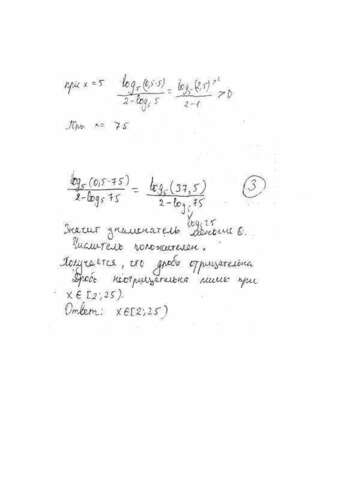 при x = 5 log₅(0,5·5) / 2 - log₅ 5 = log₅(2,5) / 2 - 1 > 0
При x = 75
log₅(0,5·75) / 2 - log₅ 75 = log₅(37,5) / 2 - log₅ 75
3
log₅ 25
Значит знаменатель меньше 0.
Числитель положителен.
Получается, что дробь отрицательна
Дробь неотрицательна лишь при
x ∈ [2; 25).
Ответ: x ∈ [2; 25)